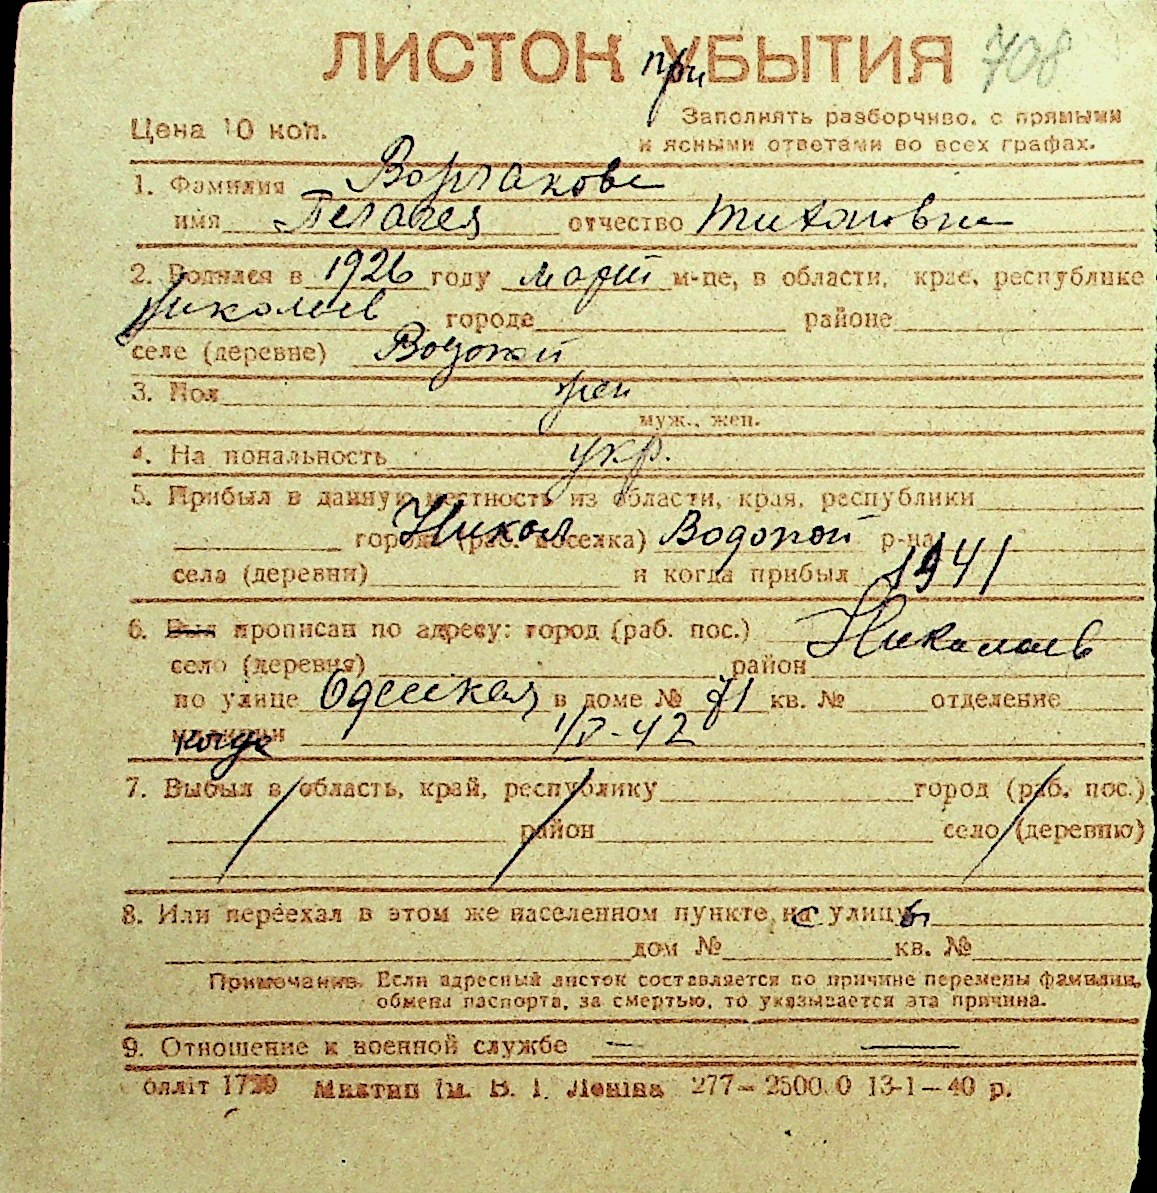 ЛИСТОК при УБЫТИЯ 708
Цена 10 коп.
Заполнять разборчиво, с прямыми
и ясными ответами во всех графах.
1. Фамилия
имя Пелагея отчество Тихоновна
2. Родился в 1926 году март м-це, в области, крае, республике
Николаев городе районе
селе (деревне) Водопой
3. Пол жен
муж., жен.
4. Национальность укр.
5. Прибыл в данную местность из области, края, республики
Никол города (раб. поселка) Водопой р-на
села (деревни) и когда прибыл 1941
6. Был прописан по адресу: город (раб. пос.) Николаев
село (деревня) район
по улице Одесская в доме № 71 кв. № отделение
милиции когда 1/V-42
7. Выбыл в область, край, республику город (раб. пос.)
район село (деревню)
8. Или переехал в этом же населенном пункте, на с улицу ы
дом № кв. №
Примечание. Если адресный листок составляется по причине перемены фамилии,
обмена паспорта, за смертью, то указывается эта причина.
9. Отношение к военной службе — —
Облліт 1729 Миктип ім. В. І. Леніна 277—2500.0 13-1—40 р.